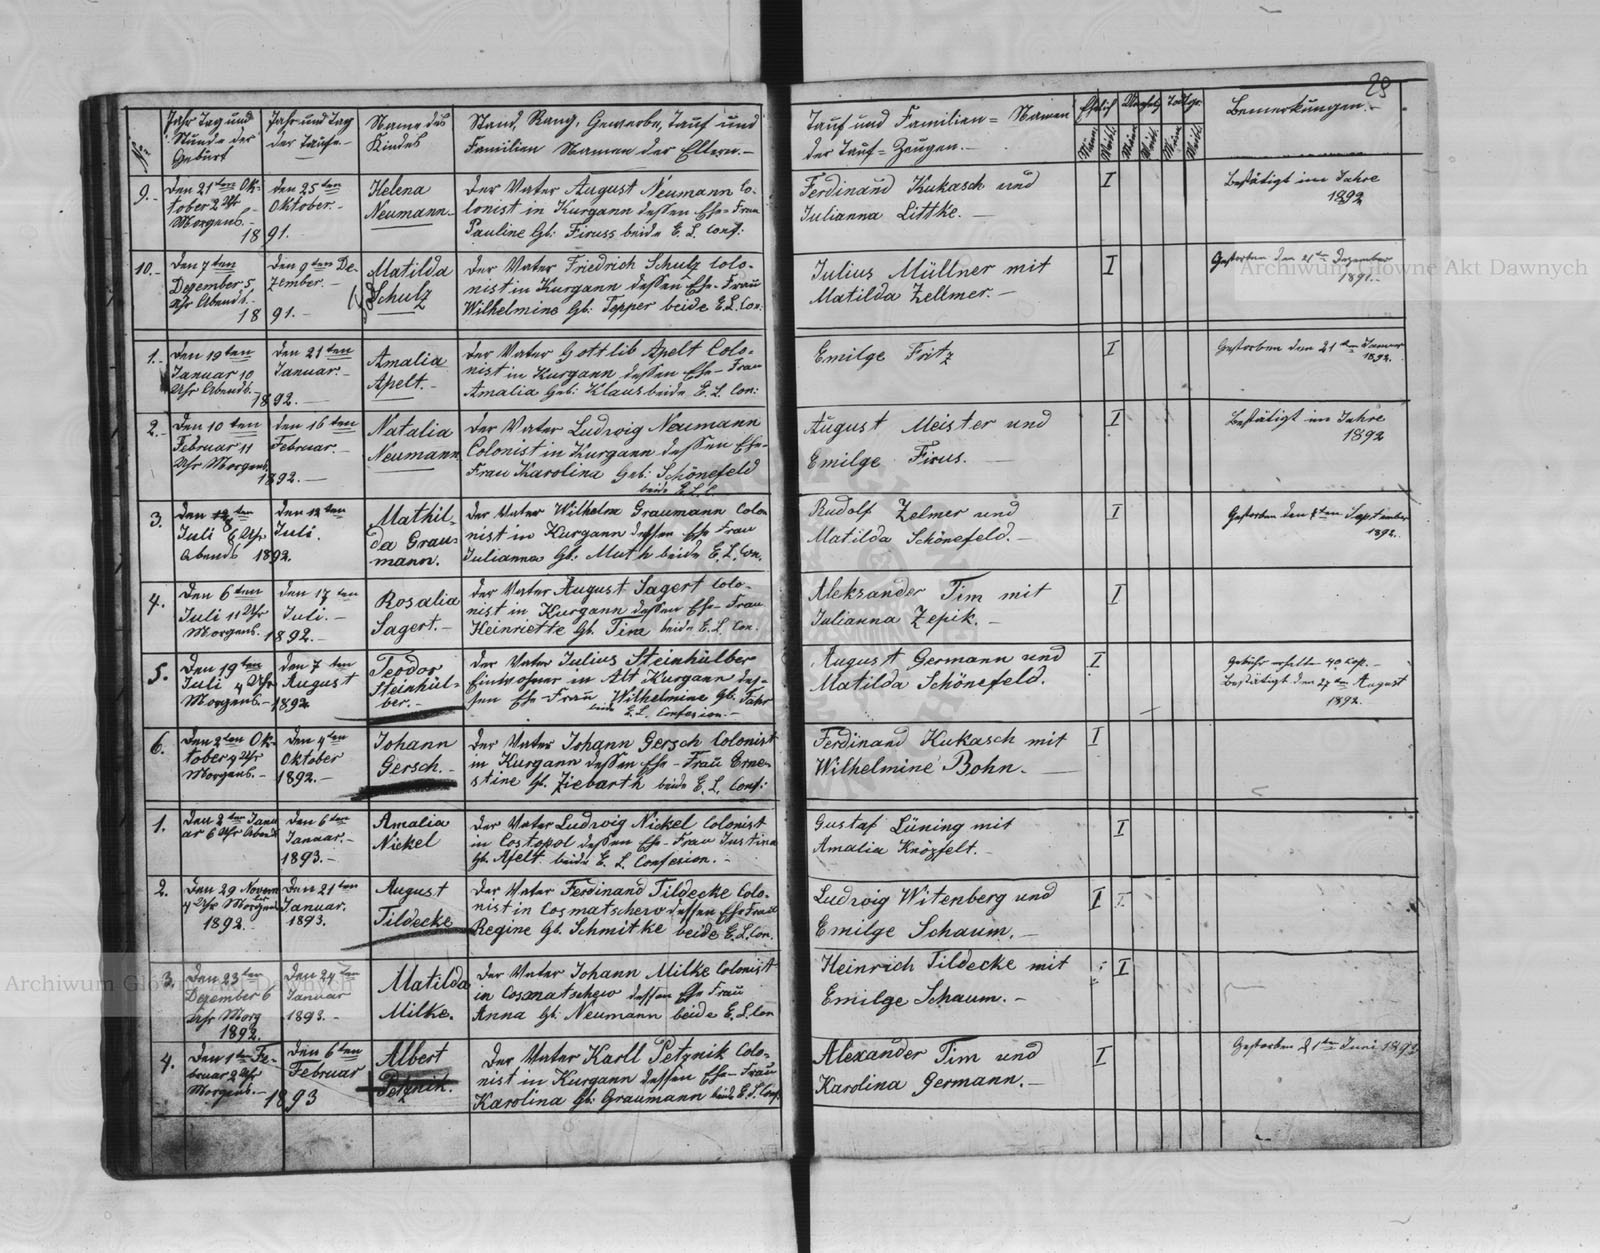 29
No
Jahr Tag und
Stunde der
Geburt
Jahr und Tag
der Taufe.
Name des
Kindes
Stand, Rang, Gewerbe, Tauf und
Familien Namen der Eltern.
Tauf und Familien-Namen
der Tauf-Zeugen.
Ehelich
Todtgr.
Männ.
Weibl.
Männ.
Weibl.
Männ.
Weibl.
Bemerkungen.
9.
Den 21ten Ok-
tober 2 Uhr
Morgens.
1891.
Den 25ten
Oktober.
Helena
Neumann
Der Vater August Neumann Co-
lonist in Kurgann dessen Ehe-Frau
Pauline Gb: Firuss beide E. L. Conf:
Ferdinand Kukasch und
Julianna Littke.
I
Bestätigt im Jahre
1892
10.
Den 7ten
Dezember 5
Uhr Abends.
1891.
Den 9ten De-
zember.
Matilda
Schulz
Der Vater Friedrich Schulz Colo-
nist in Kurgann dessen Ehe-Frau
Wilhelmine Gb: Tepper beide E. L. Con.
Julius Müllner mit
Matilda Zellmer.
I
Gestorben den 21ten Dezember
1891.
1.
Den 19ten
Januar 10
Uhr Abends.
1892.
Den 21ten
Januar.
Amalia
Apelt.
Der Vater Gottlib Apelt Colo-
nist in Kurgann dessen Ehe-Frau
Amalia Geb: Klaus beide E. L. Con:
Emilge Fritz
I
Gestorben den 21ten Januar
1892.
2.
Den 10ten
Februar 11
Uhr Morgens
1892.
Den 16ten
Februar.
Natalia
Neumann
Der Vater Ludwig Neumann
Colonist in Kurgann dessen Ehe-
Frau Karolina Geb: Schönefeld
beide E. L. C.
August Meister und
Emilge Firus.
I
Bestätigt im Jahre
1892
3.
Den 8ten
Juli 6 Uhr
Abends 1892.
Den 12ten
Juli.
Mathil-
da Grau-
mann.
Der Vater Wilhelm Graumann Colo
nist in Kurgann dessen Ehe Frau
Julianna Gb: Muth beide E. L. Con.
Rudolf Zelmer und
Matilda Schönefeld.
I
Gestorben den 8ten September
1892.
4.
Den 6ten
Juli 11 Uhr
Morgens. 1892.
Den 17ten
Juli.
Rosalia
Sagert.
Der Vater August Sagert Colo-
nist in Kurgann dessen Ehe-Frau
Heinriette Gb. Tim beide E. L. Con.
Aleksander Tim mit
Julianna Zepik.
I
5.
Den 19ten
Juli 4 Uhr
Morgens. 1892
Den 7ten
August
Teodor
Steinhül-
ber.
Der Vater Julius Steinhülber
Einwohner in Alt Kurgann des-
sen Ehe Frau Wilhelmine Gb. Fahr
beide E. L. Confesion.
August Germann und
Matilda Schönefeld.
I
Gebühr erhalten 40 Kop.
Bestätigt den 27ten August
1892.
6.
Den 2ten Ok-
tober 4 Uhr
Morgens.
Den 4ten
Oktober
1892.
Johann
Gersch.
Der Vater Johann Gersch Colonist
in Kurgann dessen Ehe-Frau Erne-
stine Gb. Ziebarth beide E. L. Conf:
Ferdinand Kukasch mit
Wilhelmine Bohn.
I
1.
Den 2ten Janu
ar 6 Uhr Abends
Den 6ten
Januar.
1893.
Amalia
Nickel
Der Vater Ludwig Nickel Colonist
in Costopol dessen Ehe-Frau Justina
Gb. Afelt beide E. L. Confesion.
Gustaf Lüning mit
Amalia Knöpfelt.
I
2.
Den 29 Novem
ber
4 Uhr Morgens
1892.
Den 21ten
Januar.
1893.
August
Tildecke
Der Vater Ferdinand Tildecke Colo-
nist in Cosmatschew dessen Ehe Frau
Regine Gb. Schmitke beide E. L. Con.
Ludwig Witenberg und
Emilge Schaum.
I
3.
Den 23ten
Dezember 6
Uhr Morg
1892.
Den 24ten
Januar
1893.
Matilda
Milke.
Der Vater Johann Milke Colonist
in Cosmatschew dessen Ehe Frau
Anna Gb: Neumann beide E. L. Con
Heinrich Tildecke mit
Emilge Schaum.
I
4.
Den 1ten Fe-
bruar 2 Uhr
Morgens.
1893
Den 6ten
Februar
Albert
Petznik.
Der Vater Karll Petznik Colo-
nist in Kurgann dessen Ehe-Frau
Karolina Gb: Graumann beide E. L. Conf.
Alexander Tim und
Karolina Germann.
I
Gestorben d 1ten Juni 1893
Archiwum Główne Akt Dawnych
Archiwum Główne Akt Dawnych